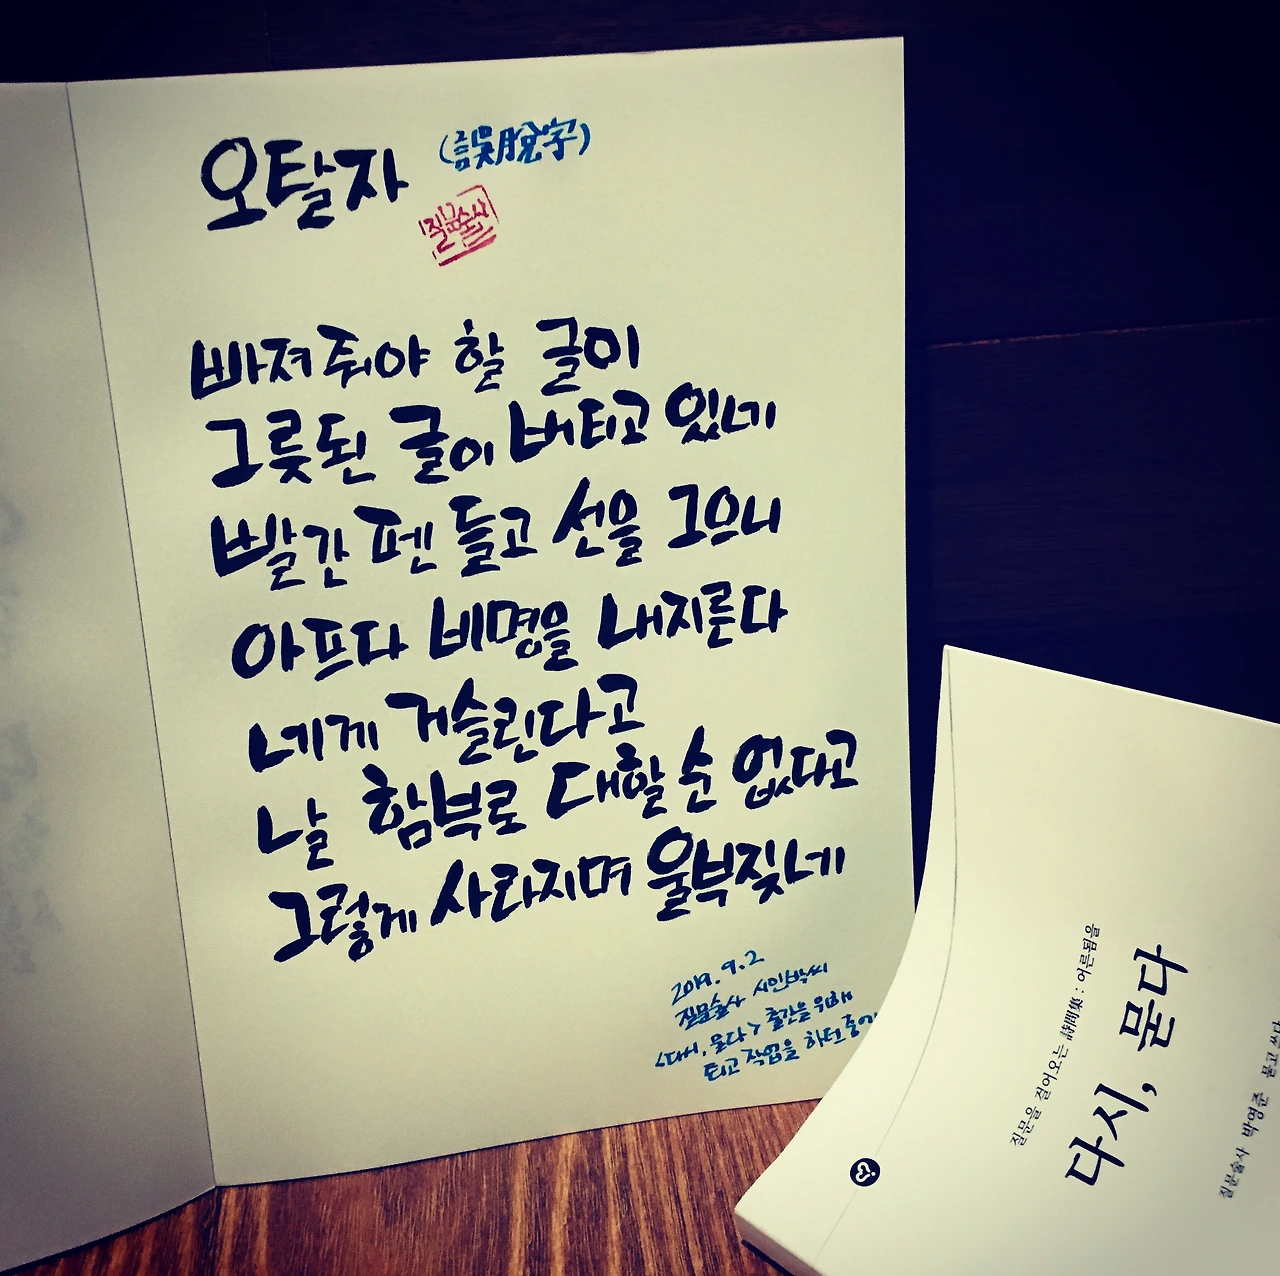 오탈자 (誤脫字)
질문술사
빠져줘야 할 글이
그릇된 글이 버티고 있네
빨간 펜 들고 선을 그으니
아프다 비명을 내지른다
네게 거슬린다고
날 함부로 대할 순 없다고
그렇게 사라지며 울부짖네
2019. 9. 2
질문술사 시인박씨
<다시, 묻다> 출간을 위해
퇴고 작업을 하던 중에
질문을 짊어오는 詩問集 : 어른됨을
다시, 묻다
질문술사 박영준 묻고 쓰다